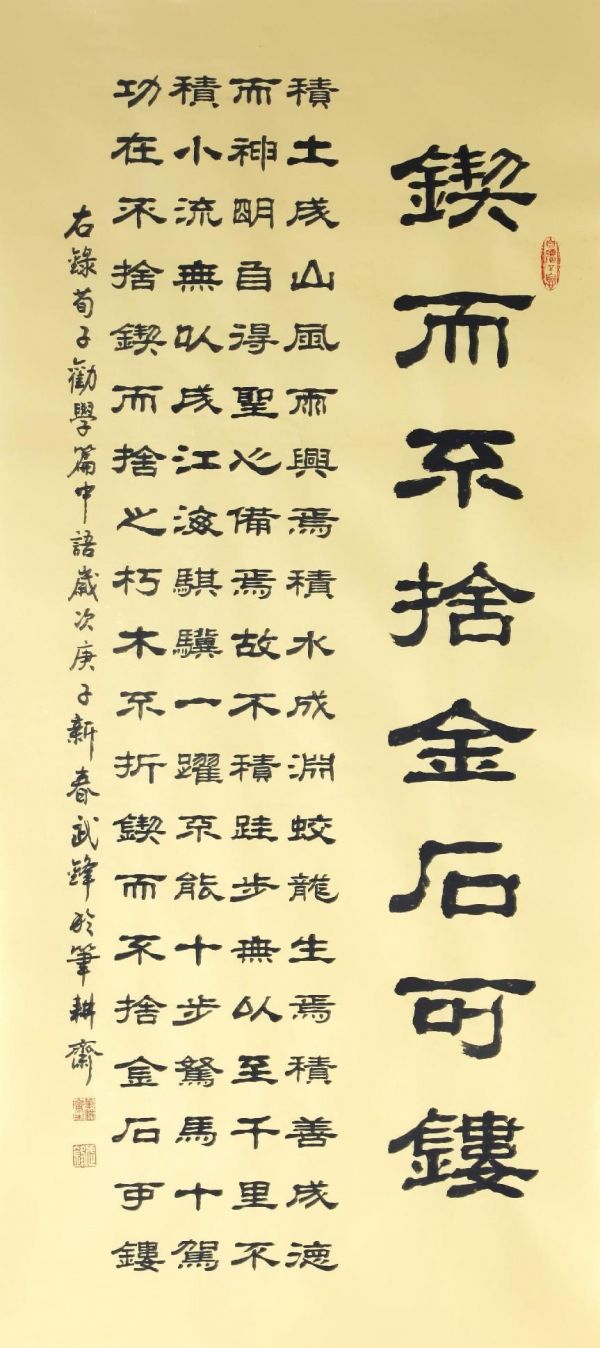 鍥而不捨金石可鏤
積土成山風雨興焉積水成淵蛟龍生焉積善成德
而神明自得聖心備焉故不積跬步無以至千里不
積小流無以成江海騏驥一躍不能十步駑馬十駕
功在不捨鍥而捨之朽木不折鍥而不捨金石可鏤
右錄荀子勸學篇中語歲次庚子新春武鋒於筆耕齋